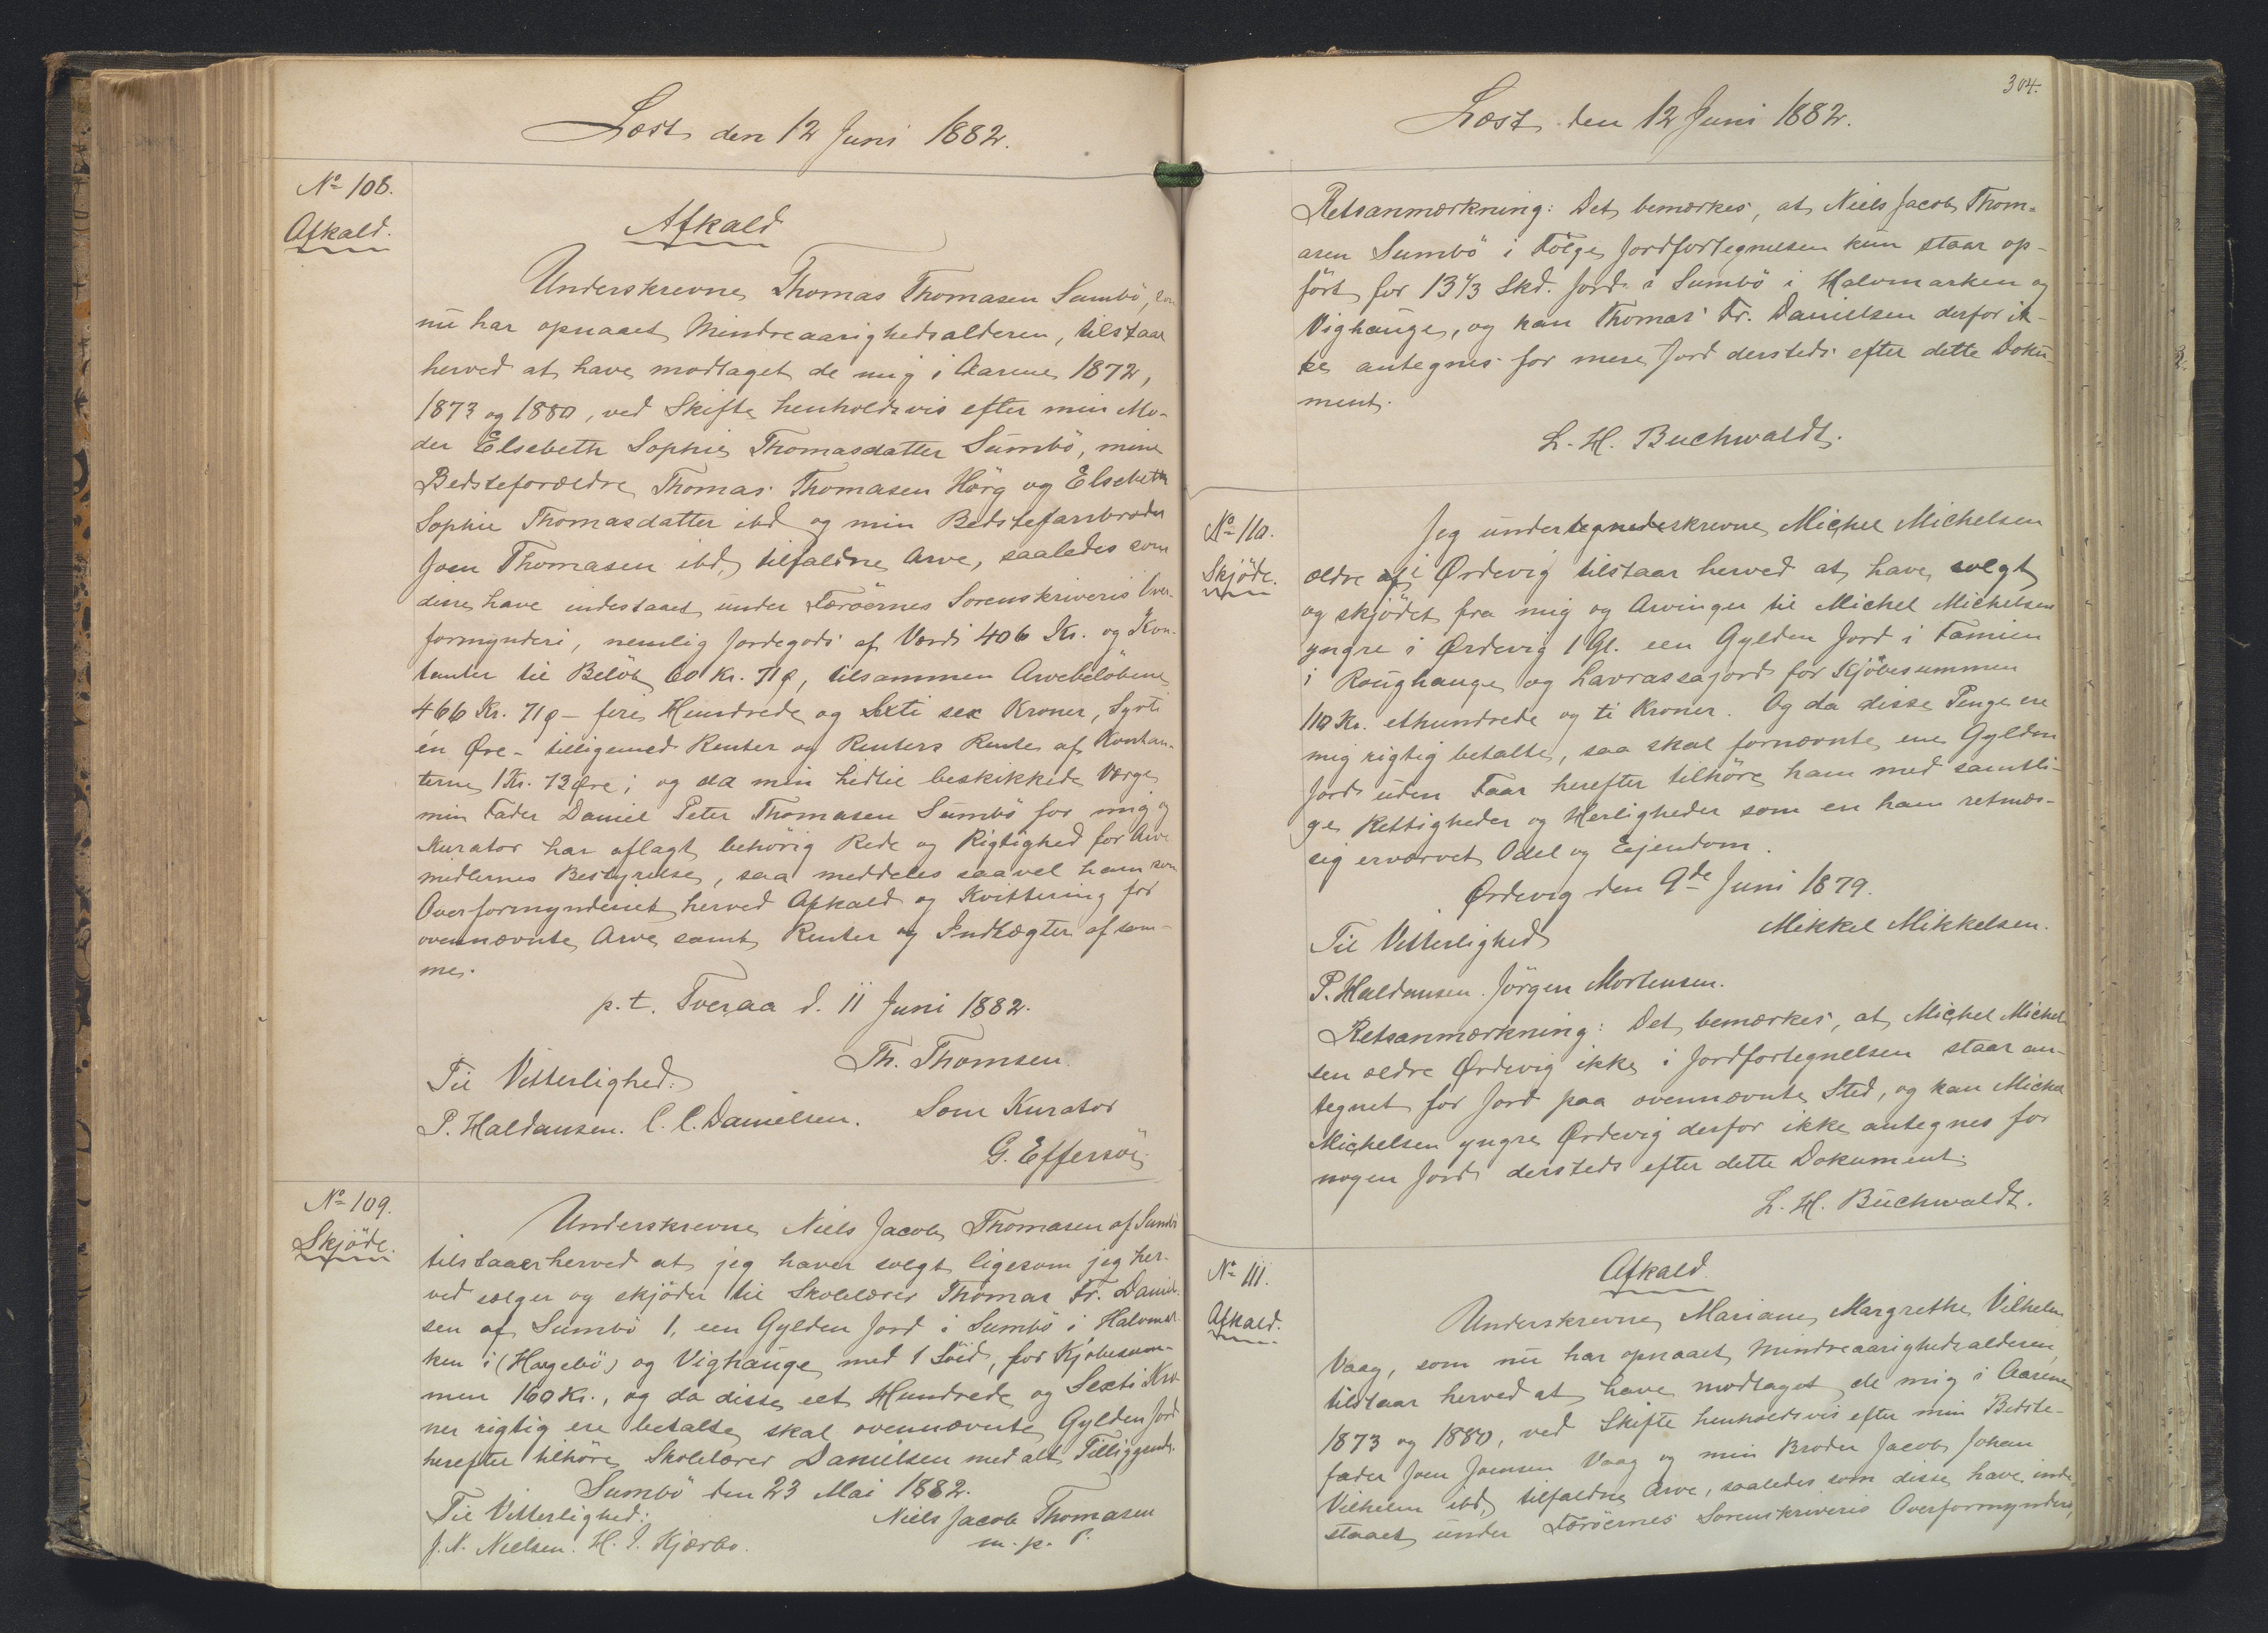 Læst den 12 Juni 1882.
No 108.
Afkald.
Afkald
Underskrevne Thomas Thomasen Sumbö, som
nu har opnaaet Mindreaarighedsalderen, tilstaar
herved at have modtaget de mig i Aarene 1872,
1873 og 1880, ved Skifte henholdsvis efter min Mo-
der Elsebeth Sophie Thomasdatter Sumbö, mine
Bedsteforældre Thomas Thomasen Hörg og Elsebeth
Sophie Thomasdatter ibd og min Bedstefarsbroder
Joen Thomasen ibd, tilfaldne Arve, saaledes som
disse have indestaaet under Færöernes Sorenskriveris Over-
formynderi, nemlig Jordegods af Værdi 406 Kr. og Kon-
tanter til Belöb 60 Kr. 71 ø, tilsammen Arvebelöbene
466 Kr. 71 ø - fire Hundrede og Sexti sex Kroner, Syvti
én Øre - tilligemed Renter og Renters Rente af Kontan-
terne 1 Kr. 73 Øre; og da min hidtil beskikkede Værge
min Fader Daniel Peter Thomasen Sumbö for mig og
Kurator har aflagt behörig Rede og Rigtighed for Arve
midlernes Bestyrelse, saa meddeles saavel ham som
Overformynderiet herved Afkald og Kvittering for
ovennævnte Arve samt Renter og Indtægter af sam-
me.
p.t. Tveraa d. 11 Juni 1882.
Th. Thomsen.
Til Vitterlighed:
Som Kurator
P. Haldansen. C. C. Danielsen.
G. Effersöe
No 109.
Skjöde.
Underskrevne Niels Jacob Thomasen af Sumbö
tilstaaer herved at jeg haver solgt ligesom jeg her-
ved sælger og skjöder til Skolelærer Thomas Fr. Daniel-
sen af Sumbö 1, een Gylden Jord i Sumbö i Halvmar-
ken i (Hagebö) og Vighauge med 1 Söid, for Kjöbesum-
men 160 Kr., og da disse eet Hundrede og Sexti Kro-
ner rigtig ere betalte, skal ovennævnte Gylden Jord
herefter tilhöre Skolelærer Danielsen med alt Tilliggende.
Sumbö den 23 Mai 1882.
Til Vitterlighed:
Niels Jacob Thomasen
J. N. Nielsen. H. J. Kjærbo.
m. p. P.
304.
Læst den 12 Juni 1882.
Retsanmærkning: Det bemærkes, at Niels Jacob Thom-
asen Sumbö i Fölge Jordfortegnelsen kun staar op-
fört for 13 1/3 Skd. Jord i Sumbö i Halvmarken og
Vighauge, og kan Thomas Fr. Danielsen derfor ik-
ke antegnes for mere Jord dersteds efter dette Doku-
ment.
L. H. Buchwaldt.
No 110.
Skjöde.
Jeg undertegnedeskrevne Michel Michelsen
ældre af i Ördevig tilstaar herved at have solgt
og skjödet fra mig og Arvinger til Michel Michelsen
yngre i Ördevig 1 Gl. een Gylden Jord i Famien
i Roughauge og havrassajord for Kjöbesummen
110 Kr. ethundrede og ti Kroner. Og da disse Penge ere
mig rigtig betalte, saa skal fornævnte ene Gylden
Jord uden Faar herefter tilhöre ham med samtli-
ge Rettigheder og Herligheder som en ham retmæs-
sig erværvet Odel og Ejendom.
Ørdevig den 9de Juni 1879.
Mikkel Mikkelsen.
Til Vitterlighed
P. Haldansen. Jörgen Mortensen.
Retsanmærkning: Det bemærkes, at Michel Michel
sen ældre Ørdevig ikke i Jordfortegnelsen staar an-
tegnet for Jord paa ovennævnte Sted, og kan Michel
Michelsen yngre Ørdevig derfor ikke antegnes for
nogen Jord dersteds efter dette Dokument.
L. H. Buchwaldt.
No 111.
Afkald.
Afkald
Underskrevne Mariane Margrethe Vilhelm
Vaag, som nu har opnaaet Mindreaarighedsalderen
tilstaar herved at have modtaget de mig i Aarene
1873 og 1880, ved Skifte henholdsvis efter min Bedste-
fader Joen Joensen Vaag og min Broder Jacob Johan
Vilhelm ibd, tilfaldne Arve, saaledes som disse have inde-
staaet under Færöernes Sorenskriveris Overformynderi,